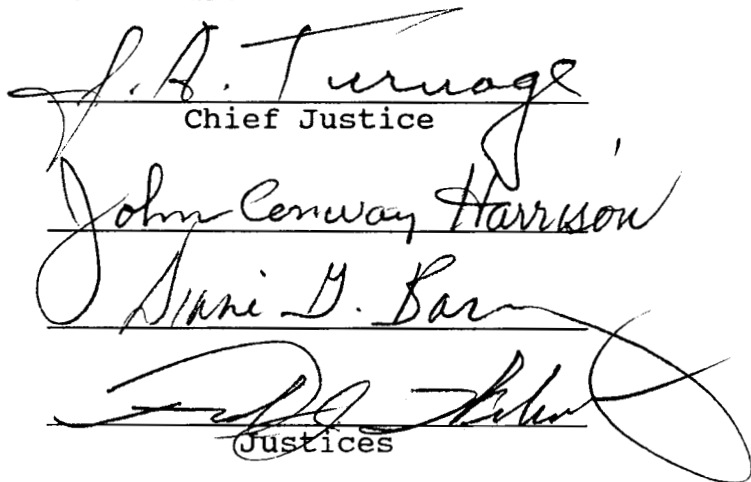 J. A. Turnage
Chief Justice
John Conway Harrison
Diane G. Bar
Justices